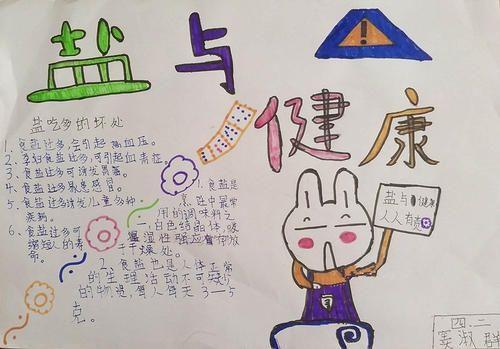 盐与
健康
盐吃多的坏处
1、食盐过多,会引起高血压。
2、孕妇食盐过多,可引起
3、食盐过多可诱发胃
4、食盐过多易患感冒。
5、食盐过多诱发儿童多种
疾病。
6、食盐过多可
缩短人的寿
命。
1、食盐是
烹饪中最常
用的调味料之
一,白色结晶体,吸
湿性强应存放
于干燥处。
2、食盐也是人体正常
的生理活动不可缺少
的物质,每人每天3—5
克。
盐与健康
人人有责
四.二
淑